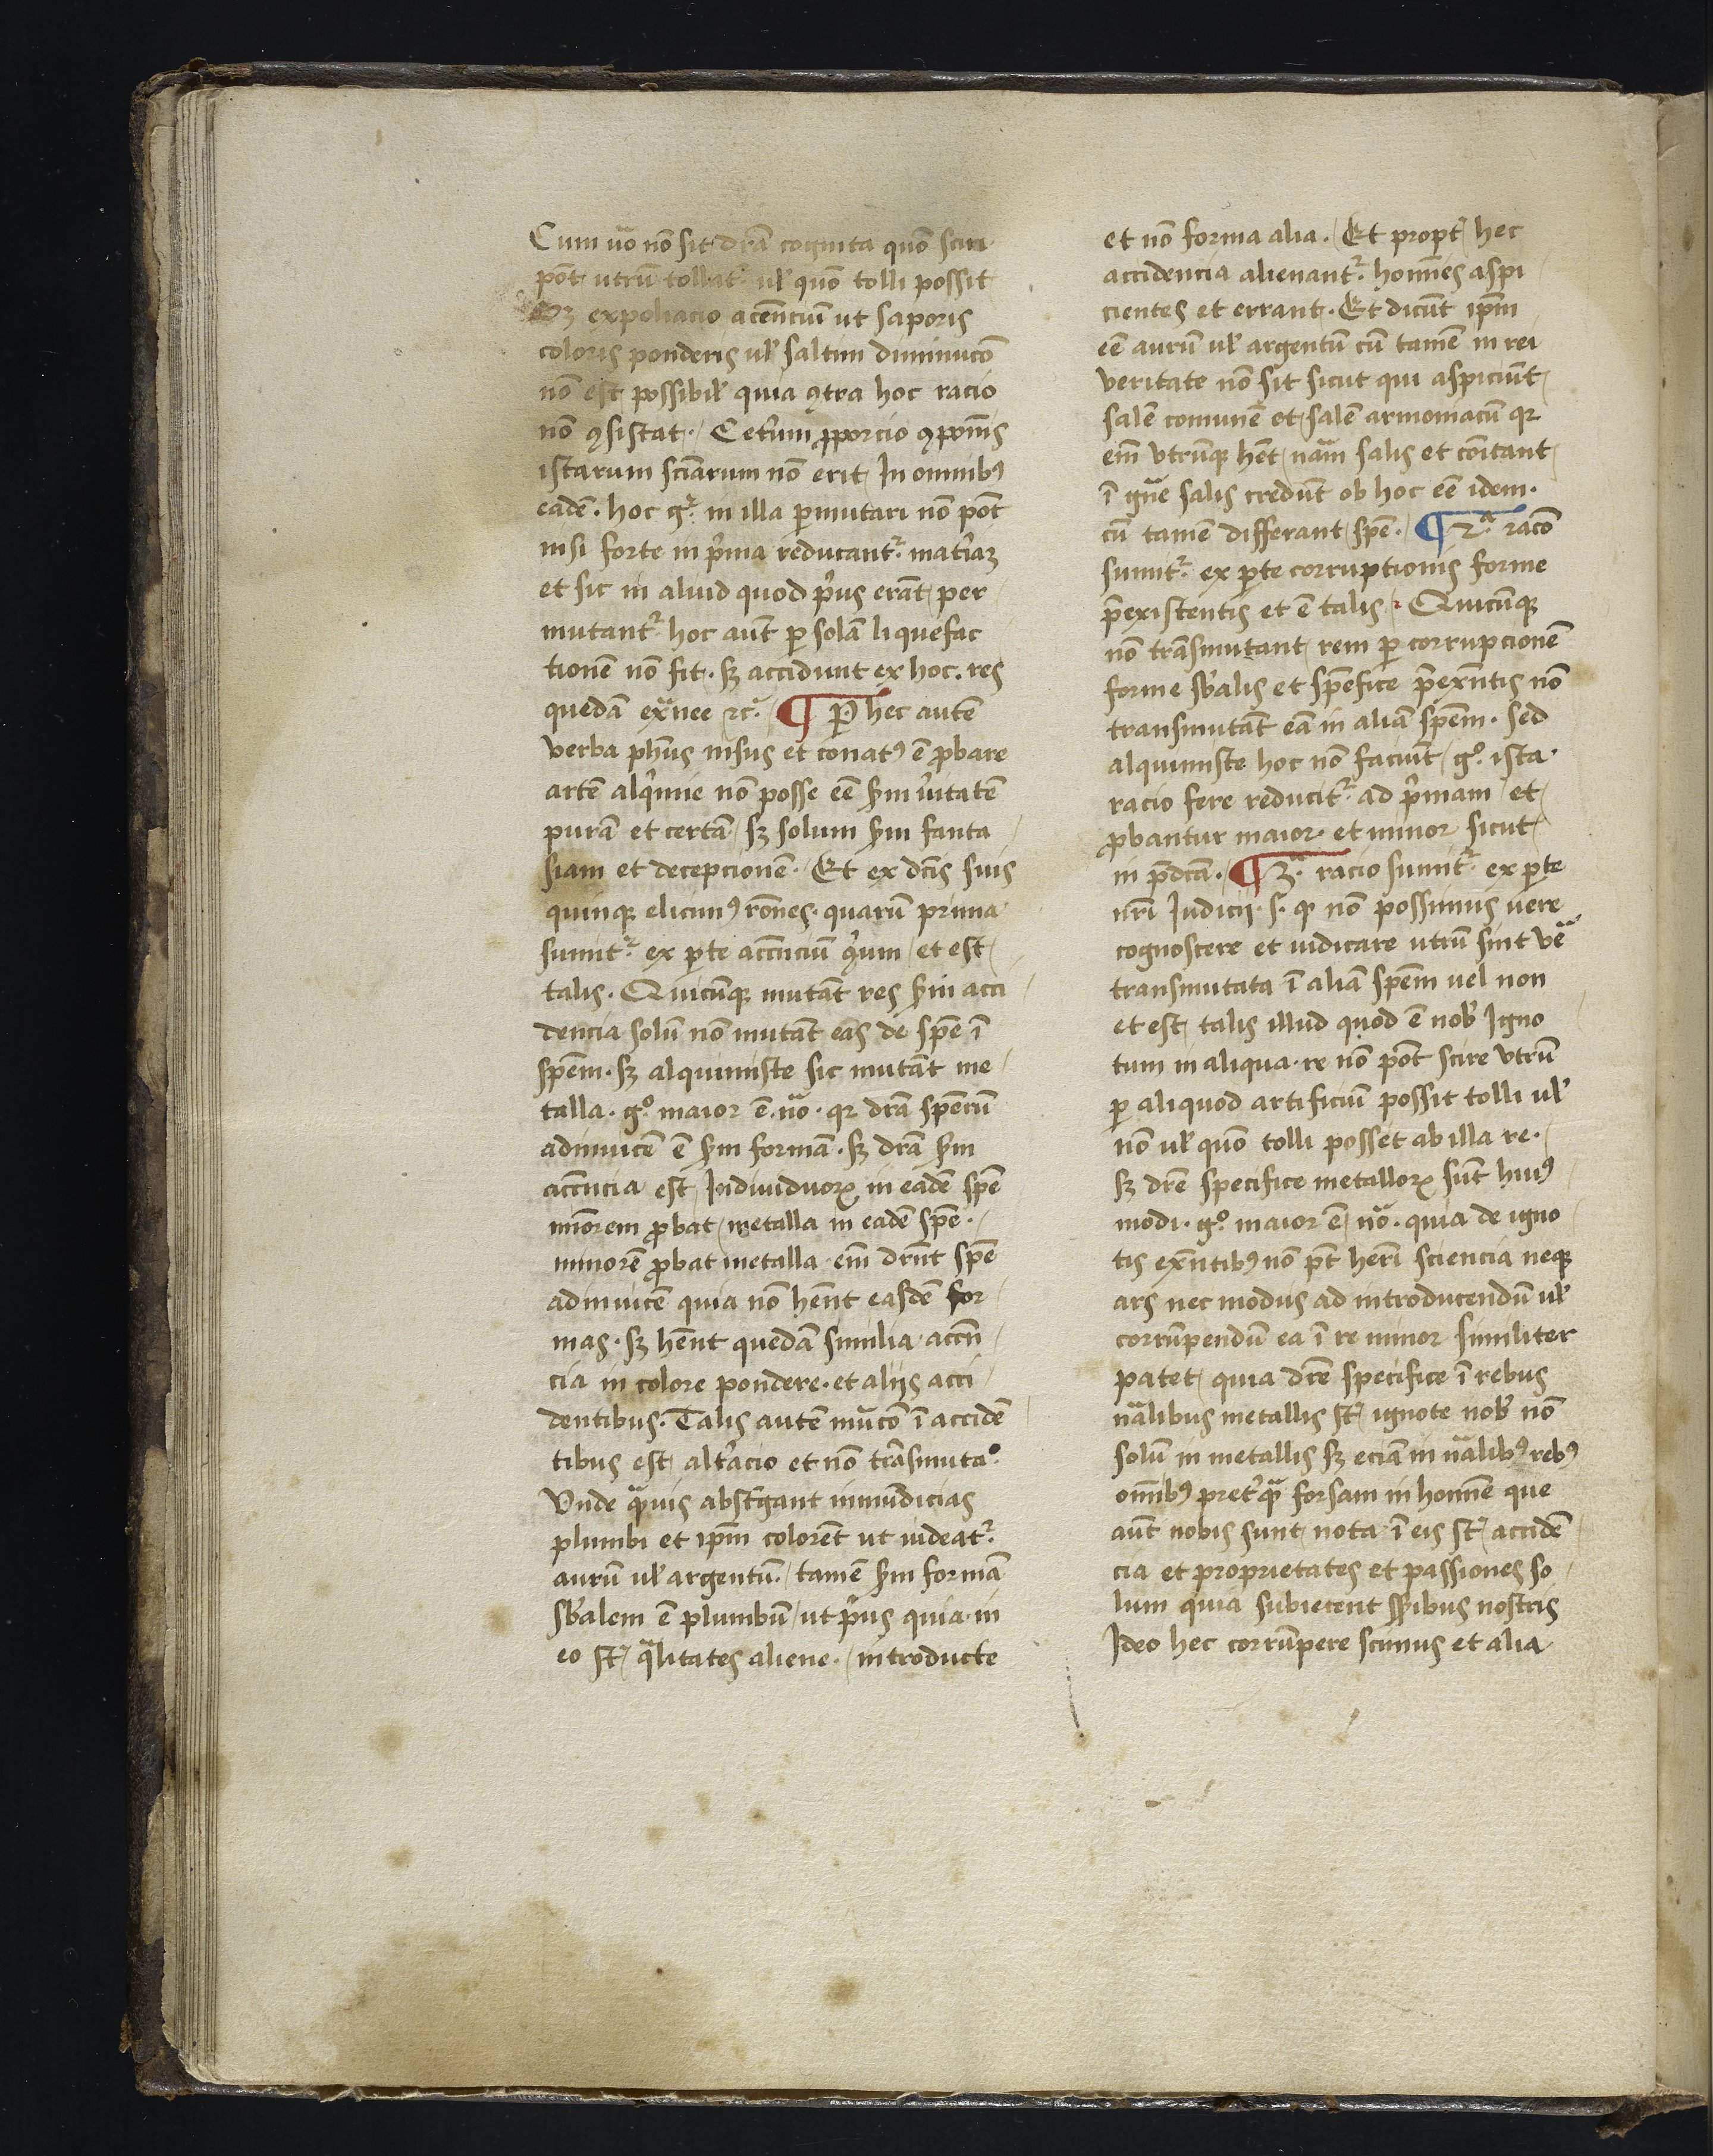 Cum uo͞ no͞ sit dr͞a cognita quo͞ sciri
po͞t utru͞ tollat᷑ ul̉ quo͞ tolli possit
Sꝫ expoliacio acc͞enciu͞ ut saporis
coloris ponderis ul̉ saltim diminuc͞o
no͞ est possibil̉ quia ꝯtra hoc racio
no͞ ꝯsistat. Cet̉um ꝓporcio ꝯpo͞nis
istarum sci͞arum no͞ erit In omnibꝰ
eade͞. hoc g᷑ in illa ꝑmutari no͞ po͞t
nisi forte in p̉ma reducant᷑ mat̉iaꝫ
et sic in aliud quod p̉us era͞t per
mutant᷑ hoc aut͞ ꝑ sola͞ liquefac
tione͞ no͞ fit. sꝫ accidunt ex hoc. res
queda͞ ext͞nee ⁊c̉. ¶ Per hec aute͞
verba ph͞us nisus et conatꝰ e͞ ꝓbare
arte͞ alq̉mie no͞ posse ee͞ ẜm v̉itate͞
pura͞ et certa͞ sꝫ solum ẜm fanta
siam et decepcione͞. Et ex dc͞is suis
quinqꝫ elicimꝰ ro͞nes. quaru͞ prima
sumit᷑ ex ꝑte acc͞nciu͞ q̉um et est
talis. Quicu͞qꝫ muta͞t res ẜm acci
dencia solu͞ no͞ muta͞t eas de spe͞ i͞
spe͞m. sꝫ alquimiste sic muta͞t me
talla. g̊ maior e͞ no͞. qꝛ dr͞a spe͞ru͞
adinuice͞ e͞ ẜm forma͞. sꝫ dr͞a ẜm
acc͞ncia est Indiuiduoꝝ in eade͞ spe͞
mi͞orem ꝓbat metalla in eade͞ spe͞.
minore͞ ꝓbat metalla em͞ dr͞nt spe͞
adinuice͞ quia no͞ he͞nt easde͞ for
mas. sꝫ he͞nt queda͞ similia acc͞n
cia in colore pondere. et aliis acci
dentibus. Talis aute͞ mutac͞o i͞ accide͞
tibus est alt̉acio et no͞ tra͞smutao̊
Vnde qᵃuis abst̉gant inmu͞dicias
plumbi et ip͞m colore͞t ut uideat᷑
auru͞ ul̉ argentu͞. tame͞ ẜm forma͞
sb̉alem e͞ plumbu͞ ut p̉us quia in
eo st᷑ qᵃlitates aliene. introducte
et no͞ forma alia. Et propt̉ hec
accidencia alienant᷑. homi͞es aspi
cientes et errant. Et dicu͞t ip͞m
ee͞ auru͞ ul̉ argentu͞ cu͞ tame͞ in rei
veritate no͞ sit sicut qui aspiciu͞t
sale͞ comune͞ et sale͞ armoniacu͞ qꝛ
em͞ vtru͞qꝫ he͞t na͞m salis et co͞itant
i͞ igne salis credu͞t ob hoc ee͞ idem.
cu͞ tame͞ differant spe͞. ¶ 2ᵃ. rac͞o
sumit᷑ ex ꝑte corruptionis forme
p̉existentis et e͞ talis. Quicu͞qꝫ
no͞ tra͞smutant rem ꝑ corrupcione͞
forme sb̉alis et spe͞fice p̉ex͞ntis no͞
transmuta͞t ea͞ in alia͞ spe͞m. Sed
alquimiste hoc no͞ faciu͞t g̊. ista
racio fere reducit᷑ ad p̉mam et
ꝓbantur maior. et minor sicut
in p̉dc͞a. ¶ 3ᵃ. racio sumit᷑ ex ꝑte
nr͞i Iudicij. s. qꝛ no͞ possimus uere
cognoscere et iudicare utru͞ sint ve͞
transmutata i͞ alia͞ spe͞m uel non
et est talis illud quod e͞ nob̉ Igno
tum in aliqua. re no͞ po͞t scire vtru͞
ꝑ aliquod artificiu͞ possit tolli ul̉
no͞ ul̉ quo͞ tolli posset ab illa re.
sꝫ dr͞e specifice metalloꝝ su͞t huiꝰ
modi. g̊. maior e͞ no͞. quia de igno
tis ex͞ntibꝰ no͞ p͞t heri͞ sciencia neqꝫ
ars nec modus ad introducendu͞ ul̉
corru͞pendu͞ ea i͞ re minor similiter
patet quia dr͞e specifice i͞ rebus
na͞libus metallis st᷑ ignote nob̉ no͞
solu͞ in metallis sꝫ ecia͞ in na͞libꝰ rebꝰ
om͞ibꝰ pret̉qᵃ forsam in homi͞e que
aut͞ nobis sunt nota i͞ eis st᷑ accide͞
cia et proprietates et passiones so
lum quia subiecent se͞sibus nostris
Ideo hec corru͞pere scimus et alia